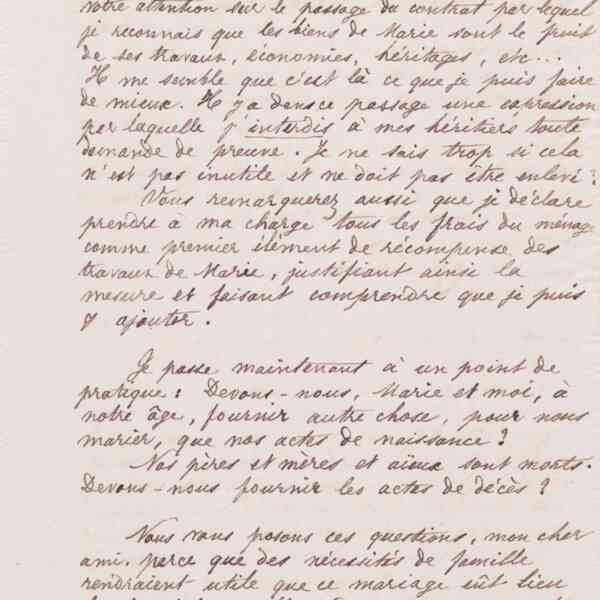 votre attention sur le passage du contrat par lequel
je reconnais que les biens de Marie sont le fruit
de ses travaux, économies, héritages, etc...
Il me semble que c'est là ce que je puis faire
de mieux. Il y a dans ce passage une expression
par laquelle j'interdis à mes héritiers toute
demande de preuve. Je ne sais trop si cela
n'est pas inutile et ne doit pas être enlevé ?
Vous remarquerez aussi que je déclare
prendre à ma charge tous les frais du ménage
comme premier élément de récompense des
travaux de Marie, justifiant ainsi la
mesure et faisant comprendre que je puis
y ajouter.
Je passe maintenant à un point de
pratique : Devons-nous, Marie et moi, à
notre âge, fournir autre chose, pour nous
marier, que nos actes de naissance ?
Nos pères et mères et aïeux sont morts.
Devons-nous fournir les actes de décès ?
Nous vous posons ces questions, mon cher
ami, parce que des nécessités de famille
rendraient utile que ce mariage eût lieu